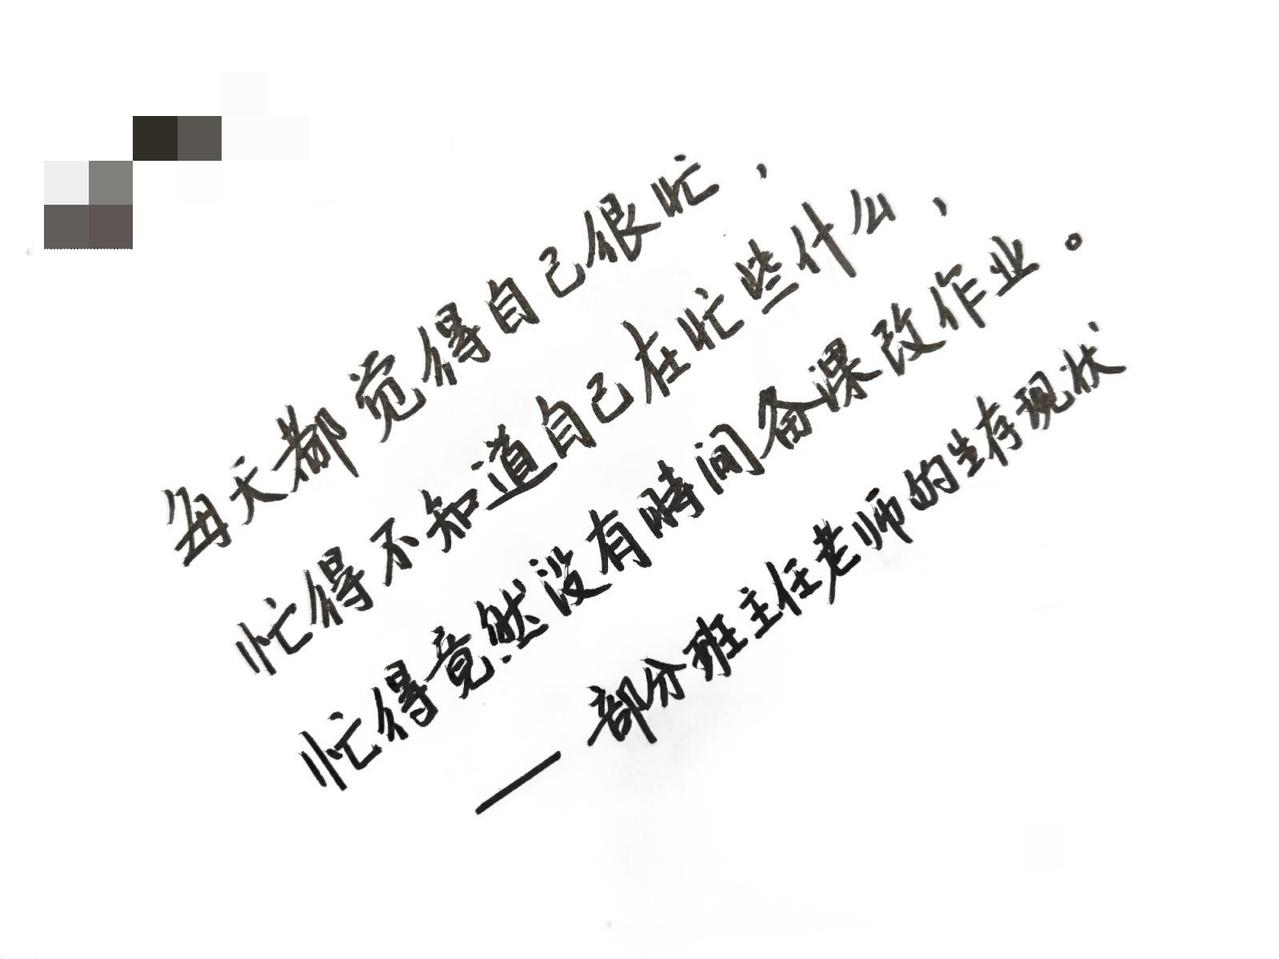 每天都觉得自己很忙，
忙得不知道自己在忙些什么，
忙得竟然没有時间备课改作业。
—部分班主任老师的生存现状